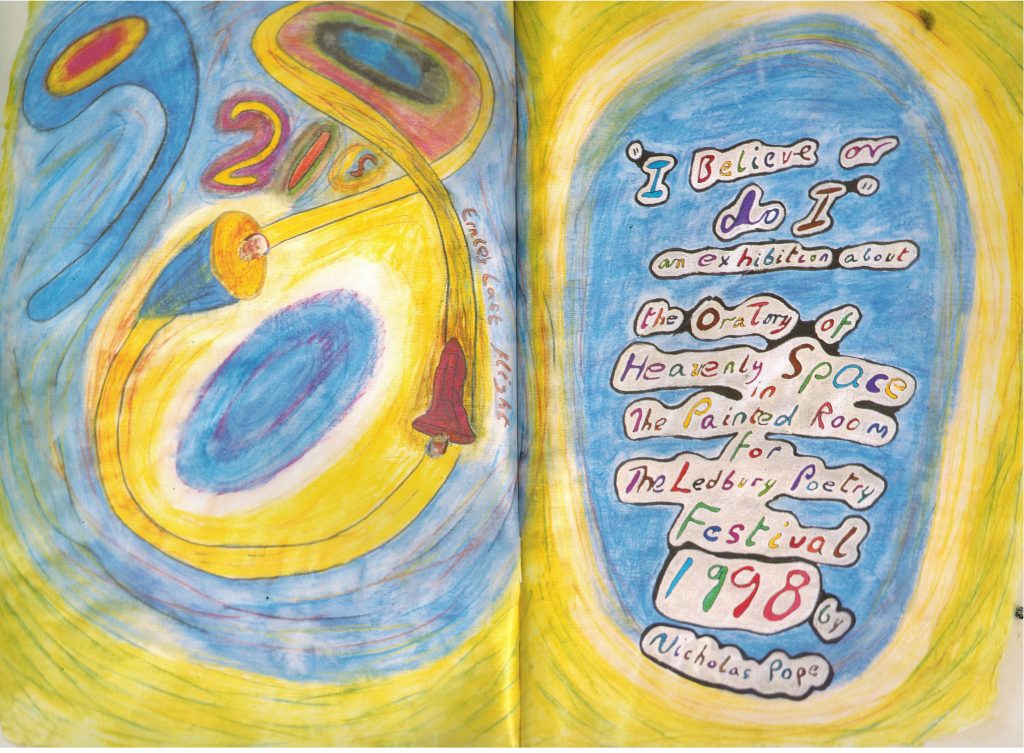 Last flight
"I Believe or
do I"
an exhibition about
the Oratory of
Heavenly Space
in
The Painted Room
for
The Ledbury Poetry
Festival
1998
by
Nicholas Pope